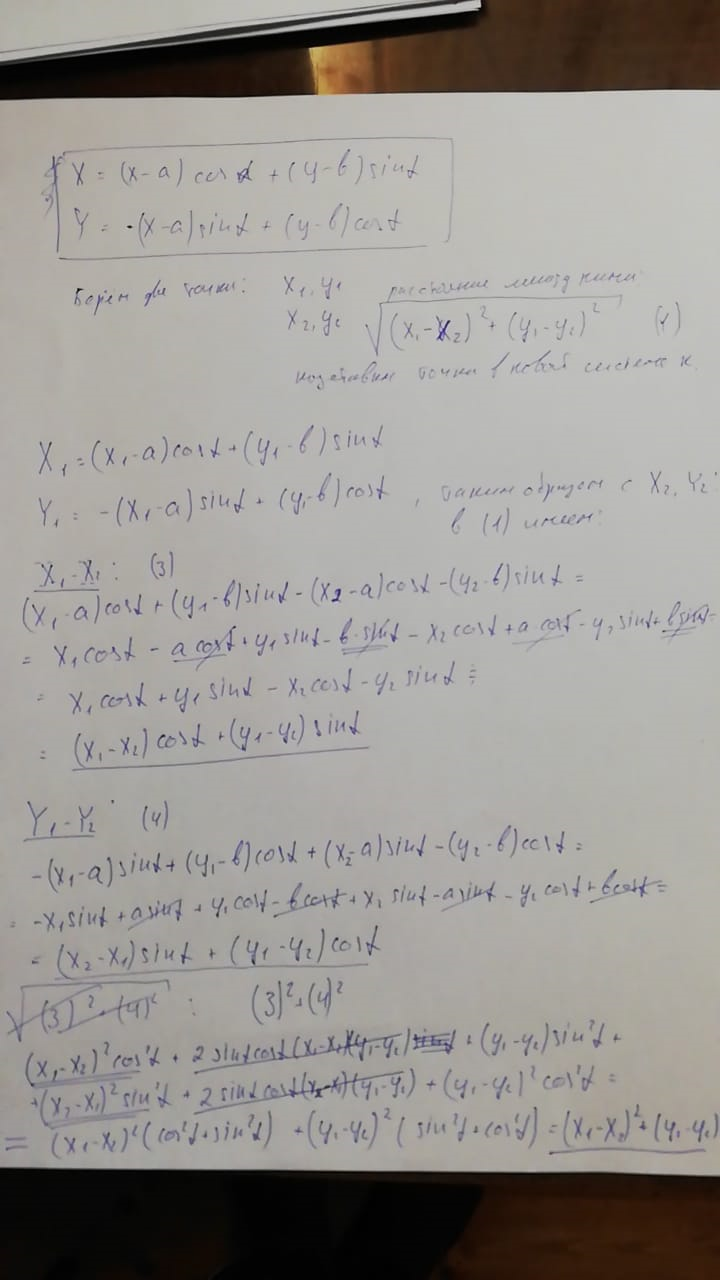 X = (x-a) cosα + (y-в) sinα
Y = -(x-a) sinα + (y-в) cosα
Берём две точки: x₁, y₁ расстояние между ними:
x₂, y₂ √((x₁-x₂)² + (y₁-y₂)²) (1)
точки в новой системе к.
X₁ = (x₁-a) cosα + (y₁-в) sinα
Y₁ = -(x₁-a) sinα + (y₁-в) cosα , таким образом с X₂, Y₂:
в (1) имеем:
X₁-X₂: (3)
(x₁-a) cosα + (y₁-в) sinα - (x₂-a) cosα - (y₂-в) sinα =
= x₁ cosα - a cosα + y₁ sinα - в sinα - x₂ cosα + a cosα - y₂ sinα + в sinα =
= x₁ cosα + y₁ sinα - x₂ cosα - y₂ sinα =
= (x₁-x₂) cosα + (y₁-y₂) sinα
Y₁-Y₂: (4)
-(x₁-a) sinα + (y₁-в) cosα + (x₂-a) sinα - (y₂-в) cosα =
= -x₁ sinα + a sinα + y₁ cosα - в cosα + x₂ sinα - a sinα - y₂ cosα + в cosα =
= (x₂-x₁) sinα + (y₁-y₂) cosα
√((3)² + (4)²) : (3)² + (4)²
(x₁-x₂)² cos²α + 2 sinα cosα (x₁-x₂)(y₁-y₂) + (y₁-y₂) sin²α +
+ (x₂-x₁)² sin²α + 2 sinα cosα (x₂-x₁)(y₁-y₂) + (y₁-y₂)² cos²α =
= (x₁-x₂)² (cos²α + sin²α) + (y₁-y₂)² (sin²α + cos²α) = (x₁-x₂)² + (y₁-y₂)